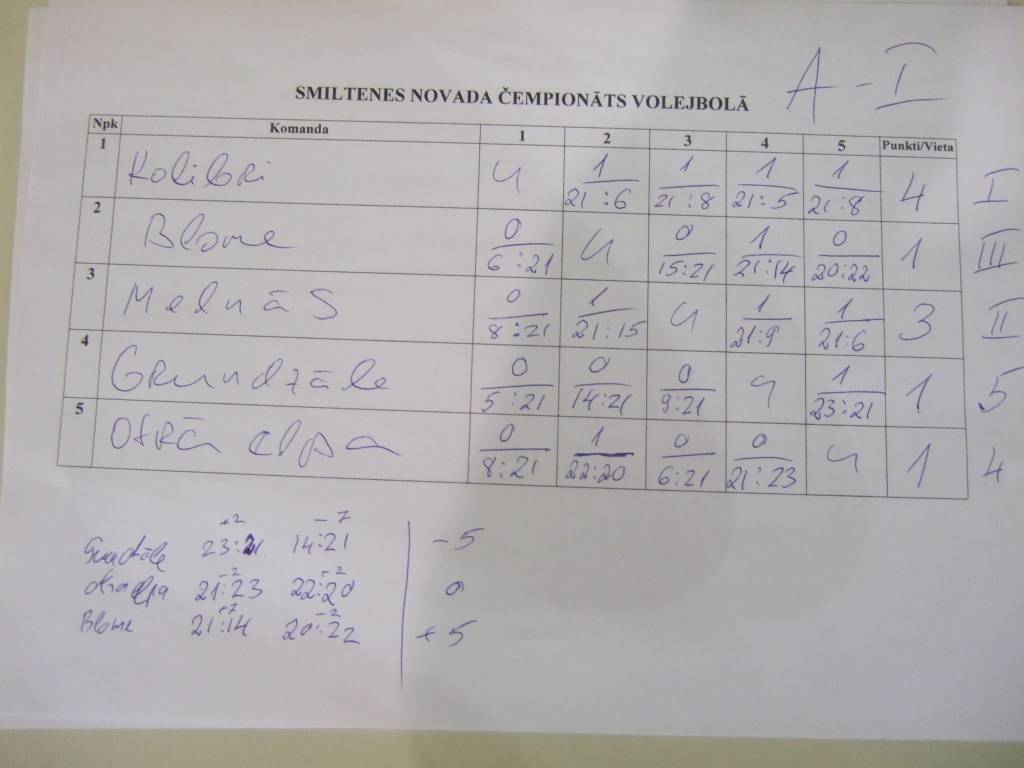 A - I
SMILTENES NOVADA ČEMPIONĀTS VOLEJBOLĀ
Npk Komanda 1 2 3 4 5 Punkti/Vieta
1 Kolibri 1 21:6 1 21:8 1 21:5 1 21:8 4 I
2 Blome 0 6:21 0 15:21 1 21:14 0 20:22 1 III
3 Melnā S 0 8:21 1 21:15 1 21:9 1 21:6 3 II
4 Grundzāle 0 5:21 0 14:21 0 9:21 1 23:21 1 5
5 Otrā elpa 0 8:21 1 22:20 0 6:21 0 21:23 1 4
+2 -7
Grundzāle 23:21 14:21 -5
-2 +2
otra elpa 21:23 22:20 0
+7 -2
Blome 21:14 20:22 +5